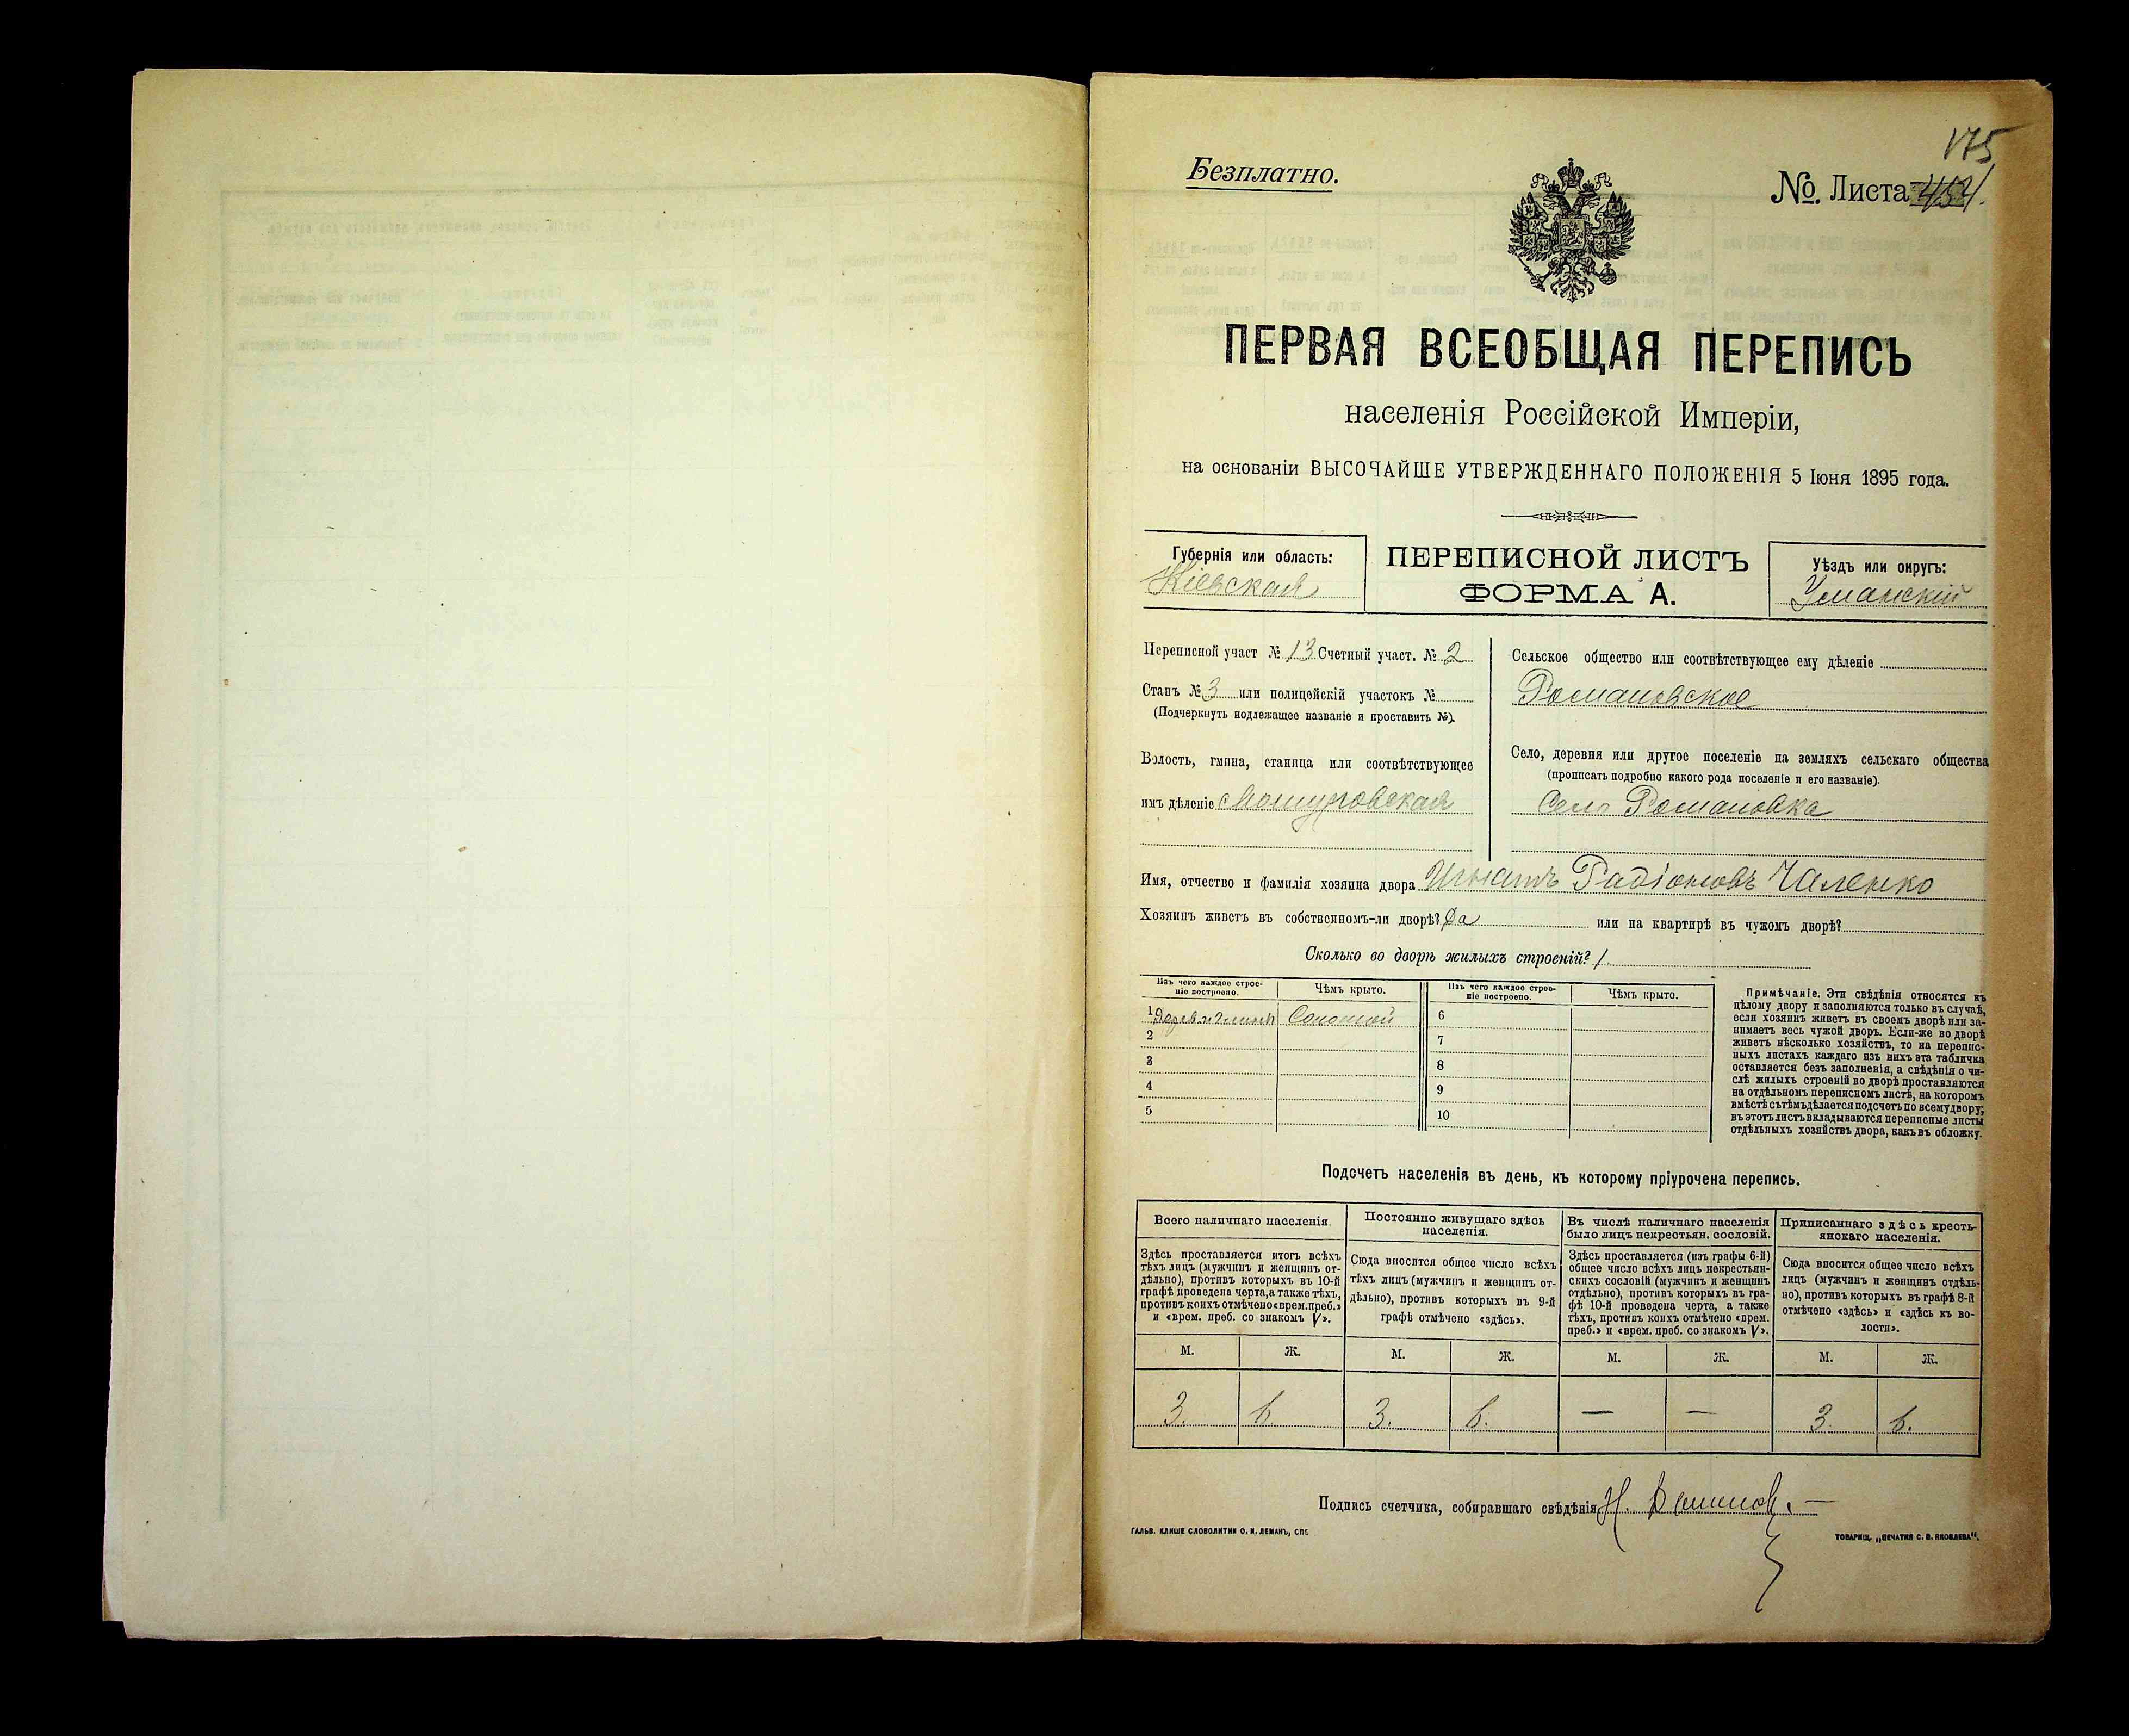 175
Безплатно.
№. Листа
ПЕРВАЯ ВСЕОБЩАЯ ПЕРЕПИСЬ
населенія Россійской Имперіи,
на основаніи ВЫСОЧАЙШЕ УТВЕРЖДЕННАГО ПОЛОЖЕНІЯ 5 Іюня 1895 года.
Губернія или область:
Кіевская
ПЕРЕПИСНОЙ ЛИСТЪ
ФОРМА А.
Уѣздъ или округъ:
Уманскій
Переписной участ № 13 Счетный участ. № 2
Станъ № 3 или полицейскій участокъ №
(Подчеркнуть подлежащее названіе и проставить №).
Волость, гмина, станица или соотвѣтствующее
имъ дѣленіе
Сельское общество или соотвѣтствующее ему дѣленіе
Романовское
Село, деревня или другое поселеніе на земляхъ сельскаго общества
(прописать подробно какого рода поселеніе и его названіе).
Село Романовка
Имя, отчество и фамилія хозяина двора Игнатъ Радіоновъ Чаленко
Хозяинъ живетъ въ собственномъ-ли дворѣ? Да или на квартирѣ въ чужомъ дворѣ?
Сколько во дворѣ жилыхъ строеній? 1
Изъ чего каждое строе-
ніе построено.
Чѣмъ крыто.
Изъ чего каждое строе-
ніе построено.
Чѣмъ крыто.
1 Соломой
2
3
4
5
6
7
8
9
10
Примѣчаніе. Эти свѣдѣнія относятся къ
цѣлому двору и заполняются только въ случаѣ,
если хозяинъ живетъ въ своемъ дворѣ или за-
нимаетъ весь чужой дворъ. Если-же во дворѣ
живетъ нѣсколько хозяйствъ, то на перепис-
ныхъ листахъ каждаго изъ нихъ эта табличка
оставляется безъ заполненія, а свѣдѣнія о чи-
слѣ жилыхъ строеній во дворѣ проставляются
на отдѣльномъ переписномъ листѣ, на которомъ
вмѣстѣ съ тѣмъ дѣлается подсчетъ по всему двору;
въ этотъ листъ вкладываются переписные листы
отдѣльныхъ хозяйствъ двора, какъ въ обложку.
Подсчетъ населенія въ день, къ которому пріурочена перепись.
Всего наличнаго населенія.
Здѣсь проставляется итогъ всѣхъ
тѣхъ лицъ (мужчинъ и женщинъ от-
дѣльно), противъ которыхъ въ 10-й
графѣ проведена черта, а также тѣхъ,
противъ коихъ отмѣчено «врем. преб.»
и «врем. преб. со знакомъ V».
Постоянно живущаго здѣсь
населенія.
Сюда вносится общее число всѣхъ
тѣхъ лицъ (мужчинъ и женщинъ от-
дѣльно), противъ которыхъ въ 9-й
графѣ отмѣчено «здѣсь».
Въ числѣ наличнаго населенія
было лицъ некрестьян. сословій.
Здѣсь проставляется (изъ графы 6-й)
общее число всѣхъ лицъ некрестьян-
скихъ сословій (мужчинъ и женщинъ
отдѣльно), противъ которыхъ въ гра-
фѣ 10-й проведена черта, а также
тѣхъ, противъ коихъ отмѣчено «врем.
преб.» и «врем. преб. со знакомъ V».
Приписаннаго здѣсь кресть-
янскаго населенія.
Сюда вносится общее число всѣхъ
лицъ (мужчинъ и женщинъ отдѣль-
но), противъ которыхъ въ графѣ 8-й
отмѣчено «здѣсь» и «здѣсь къ во-
лости».
М. Ж. М. Ж. М. Ж. М. Ж.
3. 6 3. 6. — — 3. 6.
Подпись счетчика, собиравшаго свѣдѣнія Н.
ГАЛЬВ. КЛИШЕ СЛОВОЛИТНИ О. И. ЛЕМАНЪ, СПБ.
ТОВАРИЩ. „ПЕЧАТНЯ С. П. ЯКОВЛЕВА".